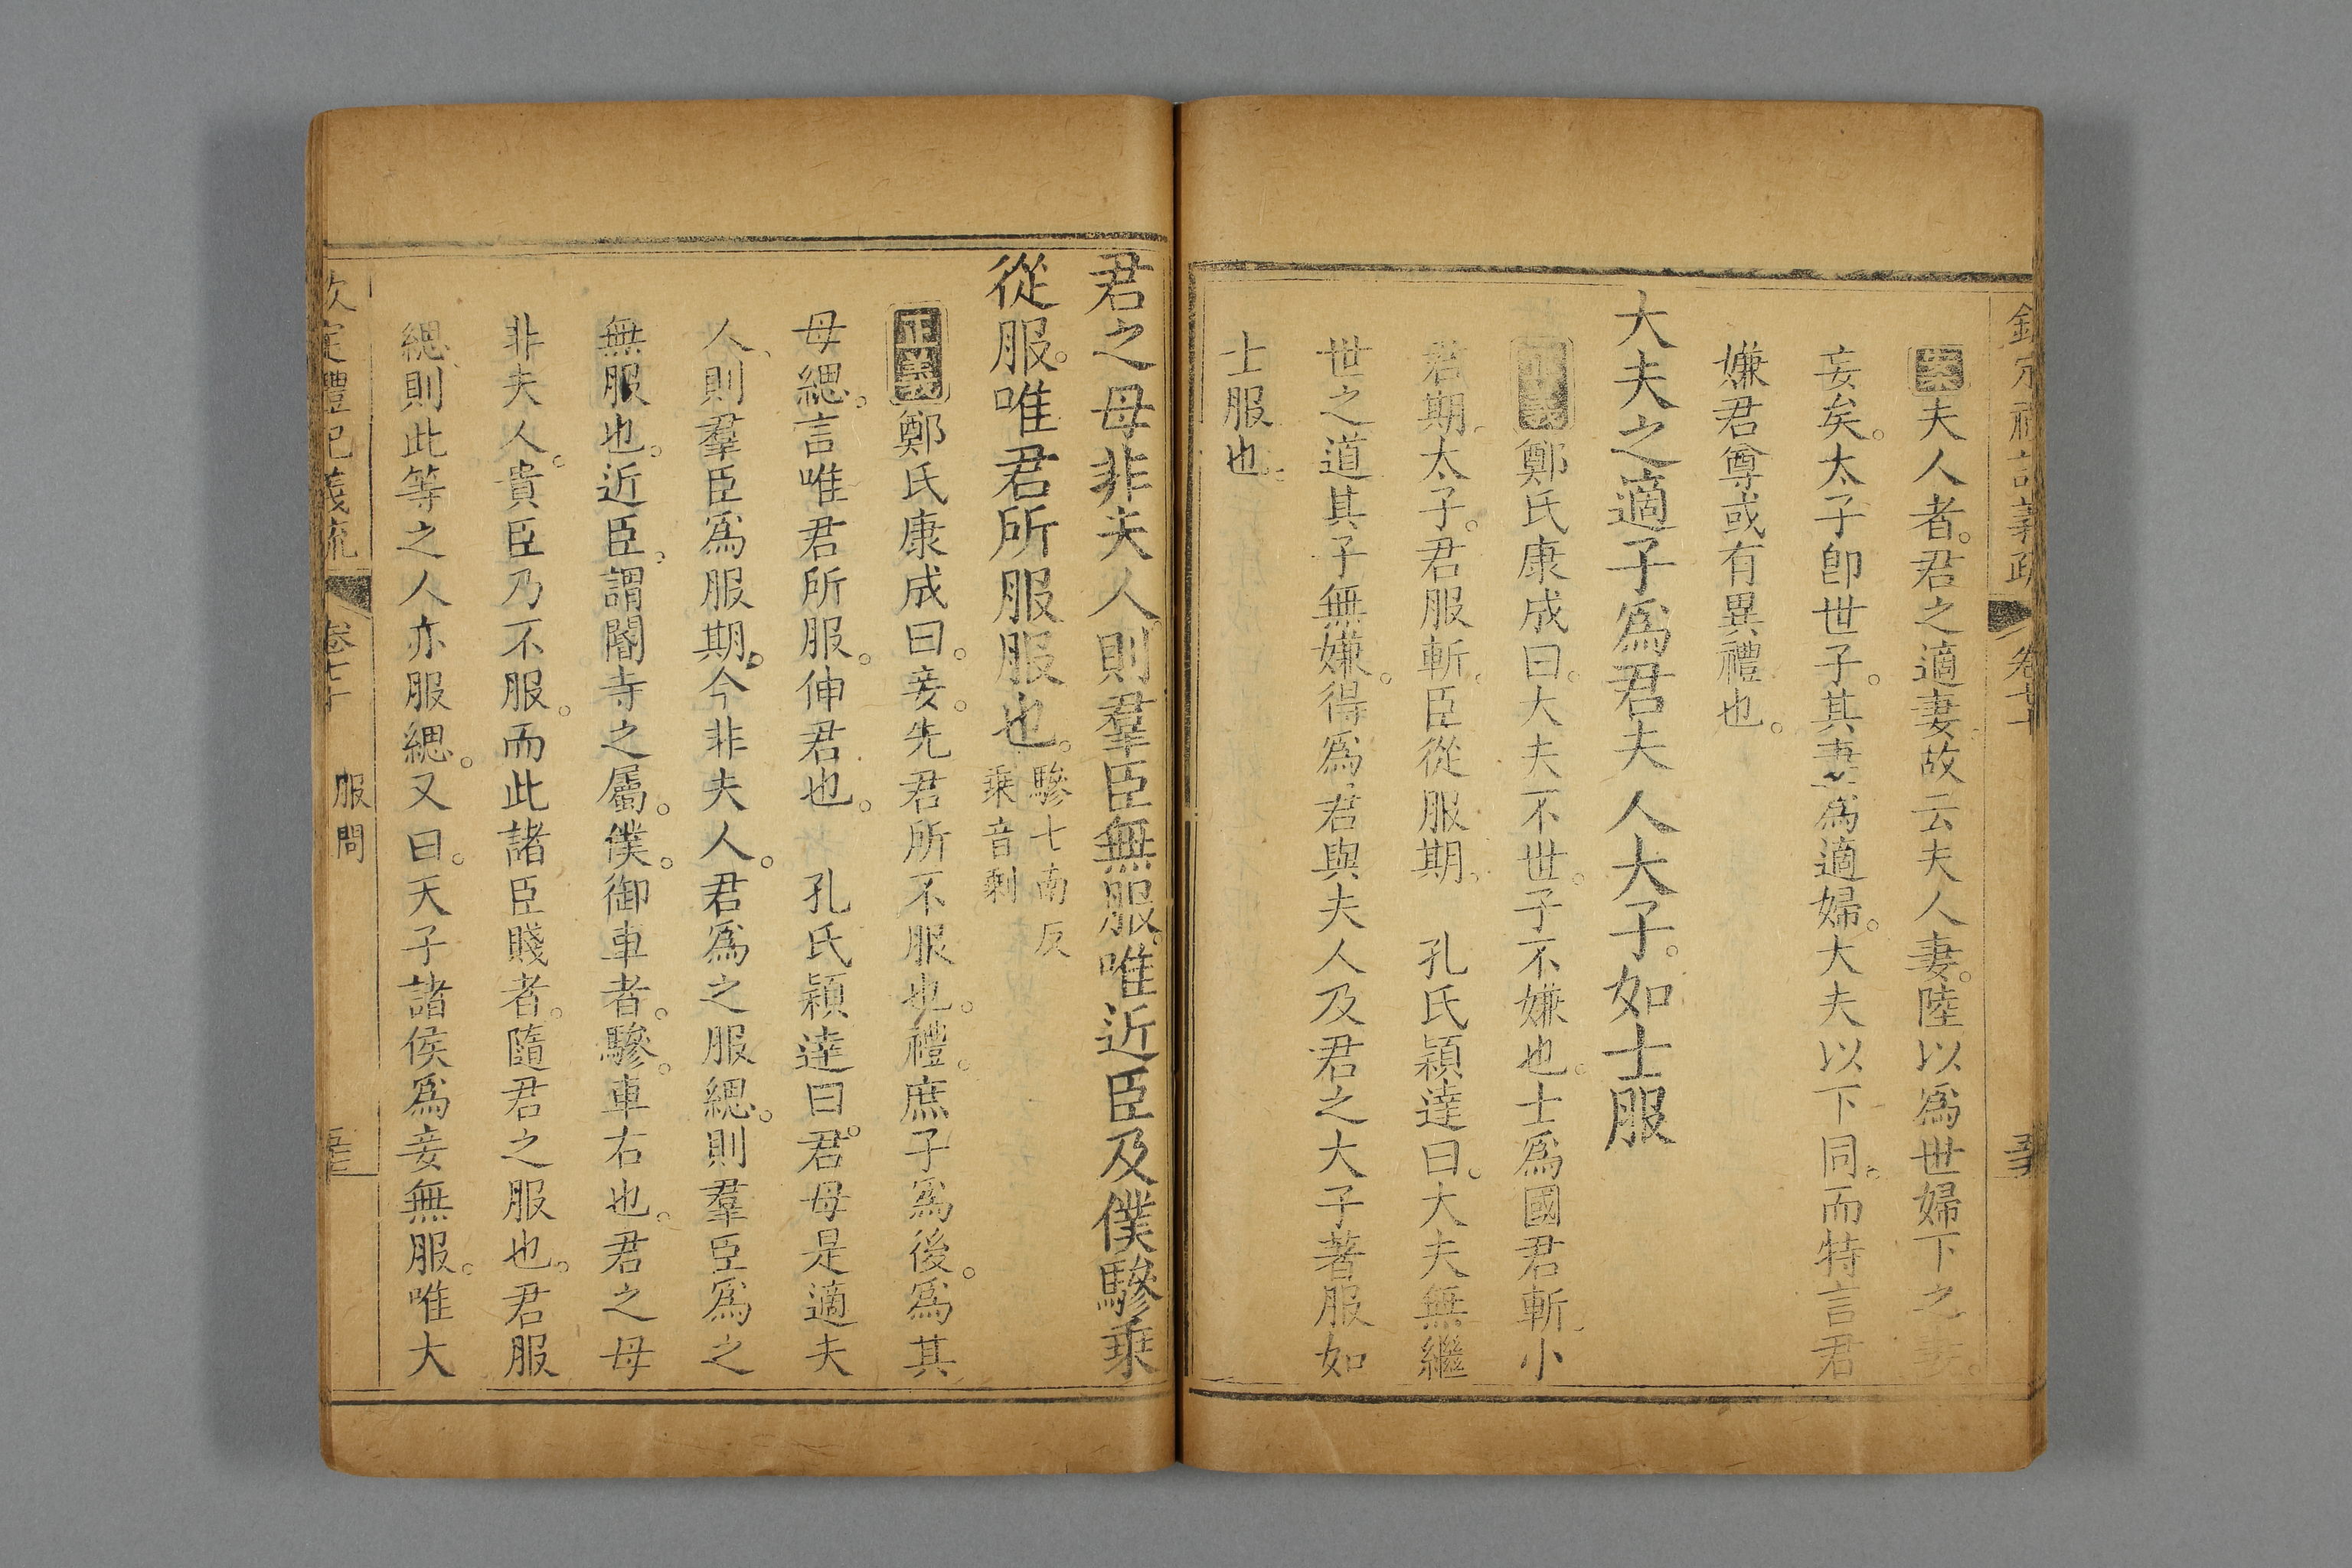 欽定禮記義疏 卷七十
案夫人者。君之適妻故云夫人妻。陸以爲世婦下之妾。
妾矣。太子卽世子。其妻爲適婦。大夫以下同。而特言君
嫌君尊或有異禮也。
大夫之適子爲君夫人大子。如士服
正義鄭氏康成曰。大夫不世。子不嫌也。士爲國君斬、小
君期。太子。君服斬。臣從服期。 孔氏穎達曰。大夫無繼
世之道其子無嫌。得爲君與夫人及君之大子著服如
士服也。
君之母非夫人則羣臣無服。唯近臣及僕驂乘
從服。唯君所服服也。驂七南反
乘音剩
正義鄭氏康成曰。妾。先君所不服也。禮。庶子爲後。爲其
母緦。言唯君所服。伸君也。 孔氏穎達曰。君母是適夫
人、則羣臣爲服期。今非夫人。君爲之服緦。則羣臣爲之
無服也。近臣。謂閽寺之屬。僕。御車者。驂。車右也。君之母
非夫人。貴臣乃不服。而此諸臣賤者。隨君之服也。君服
緦、則此等之人亦服緦。又曰。天子諸侯爲妾無服。唯大
欽定禮記義疏 卷七十 服問